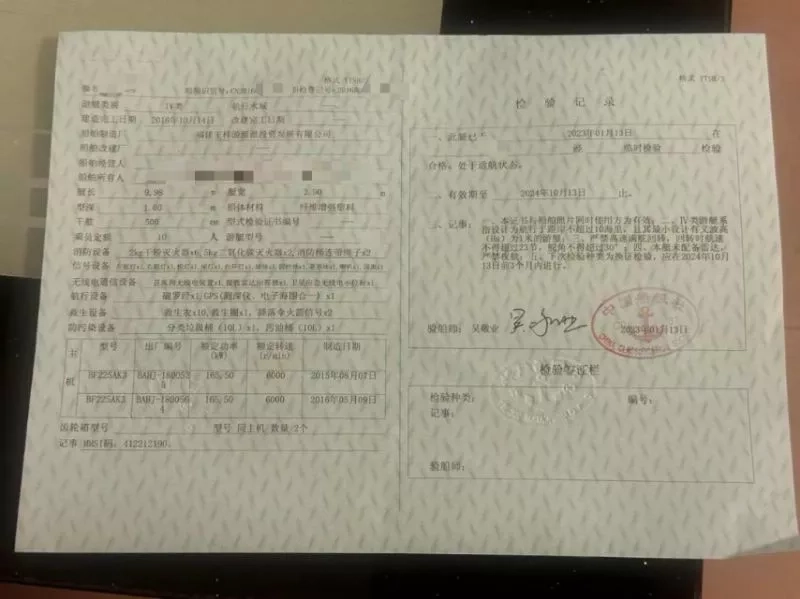 格式 YTSH/2
船名
船舶识别号:CN2016
游艇类别 IV类 航行水域 ——
建造完工日期 2016年10月14日 改建完工日期 ——
船舶制造厂
船舶改建厂 ——
船舶经营人
船舶所有人
艇长 9.98 m 艇宽 3.90 m
型深 1.60 m 船体材料 纤维增强塑料
干舷 500 mm 型式检验证书编号 ——
乘员定额 10 人 游艇型号 ——
消防设备 2kg干粉灭火器x6,5kg二氧化碳灭火器x2,消防桶连带绳子x2
信号设备
无线电通信设备
航行设备 磁罗经x1,GPS(测深仪、电子海图合一)x1
救生设备 救生衣x10,救生圈x1,降落伞火箭信号x2
防污染设备 分类垃圾桶(10L)x1,污油桶(10L)x1
主机
型号 出厂编号 额定功率(kW) 额定转速(r/min) 制造日期
BF225AK3 165.50 6000 2015年08月07日
BF225AK3 165.50 6000 2016年05月09日
齿轮箱型号 型号 同主机 数量 2个
记事 MMSI码:412212190.
格式 YTSH/3
检 验 记 录
一、此艇已于 2023年01月13日 在
经 临时检验 检验
合格,处于适航状态。
二、有效期至 2024年10月13日 止。
三、记事: 一、本证书与船舶照片同时使用方为有效。二、IV类游艇系
指设计为航行于距岸不超过10海里,且其最小设计有义波高
(Hs)为1米的游艇;三、严禁高速满舵回转,回转时航速
不得超过23节,舵角不得超过30°。四、本艇未配备雷达,
严禁夜航;五、下次检验种类为换证检验,应在2024年10月
13日前3个月内进行。
验船师: 吴敬业
2023年01月13日
检验签证栏
检验种类: 编号:
记事:
验船师: